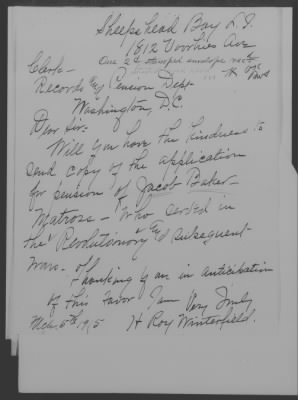 Sheepshead Bay L.I.
1812 Voorhies Ave
One 2¢ stamped envelope recd
Clerk-
Records & Pension Dept
Washington, D.C.
Dear Sir-
Will you have the kindness to
send copy of the application
for pension of Jacob Baker-
Matross - Who served in
the Revolutionary & subsequent
wars.
Thanking you in anticipation
of this favor I am Very Truly
H Roy Winterfield.